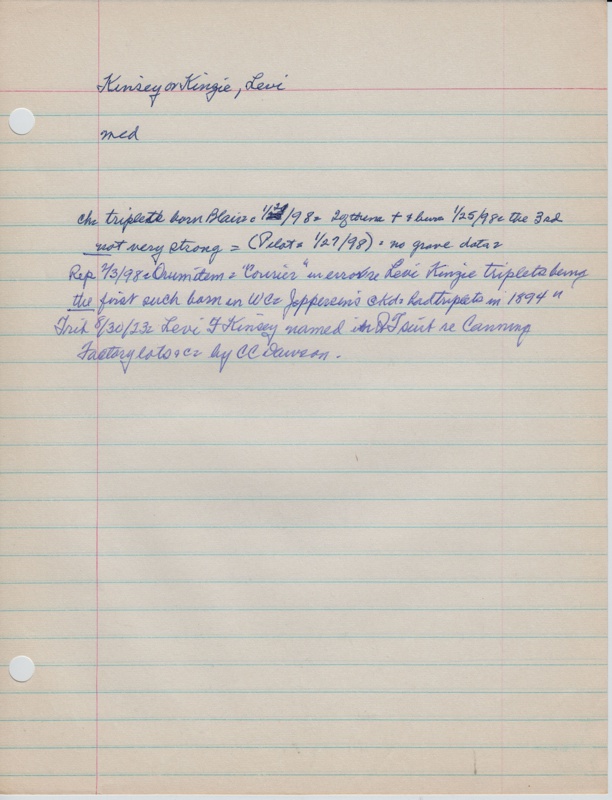 Kinsey or Kinzie, Levi
med
ch: triplets born Blair = 1/24/98 = 2 of them + + bur 1/25/98 = the 3rd
not very strong = (Pilot = 1/27/98) = no grave data =
Rep 2/3/98 = Orum item = "Courier" in error re Levi Kinzie triplets being
the first such born in WC = Jeppesein's had triplets in 1894 "
Trib 8/30/23 = Levi F Kinsey named in suit re Canning
Factory lots &c = by CC Dawson.